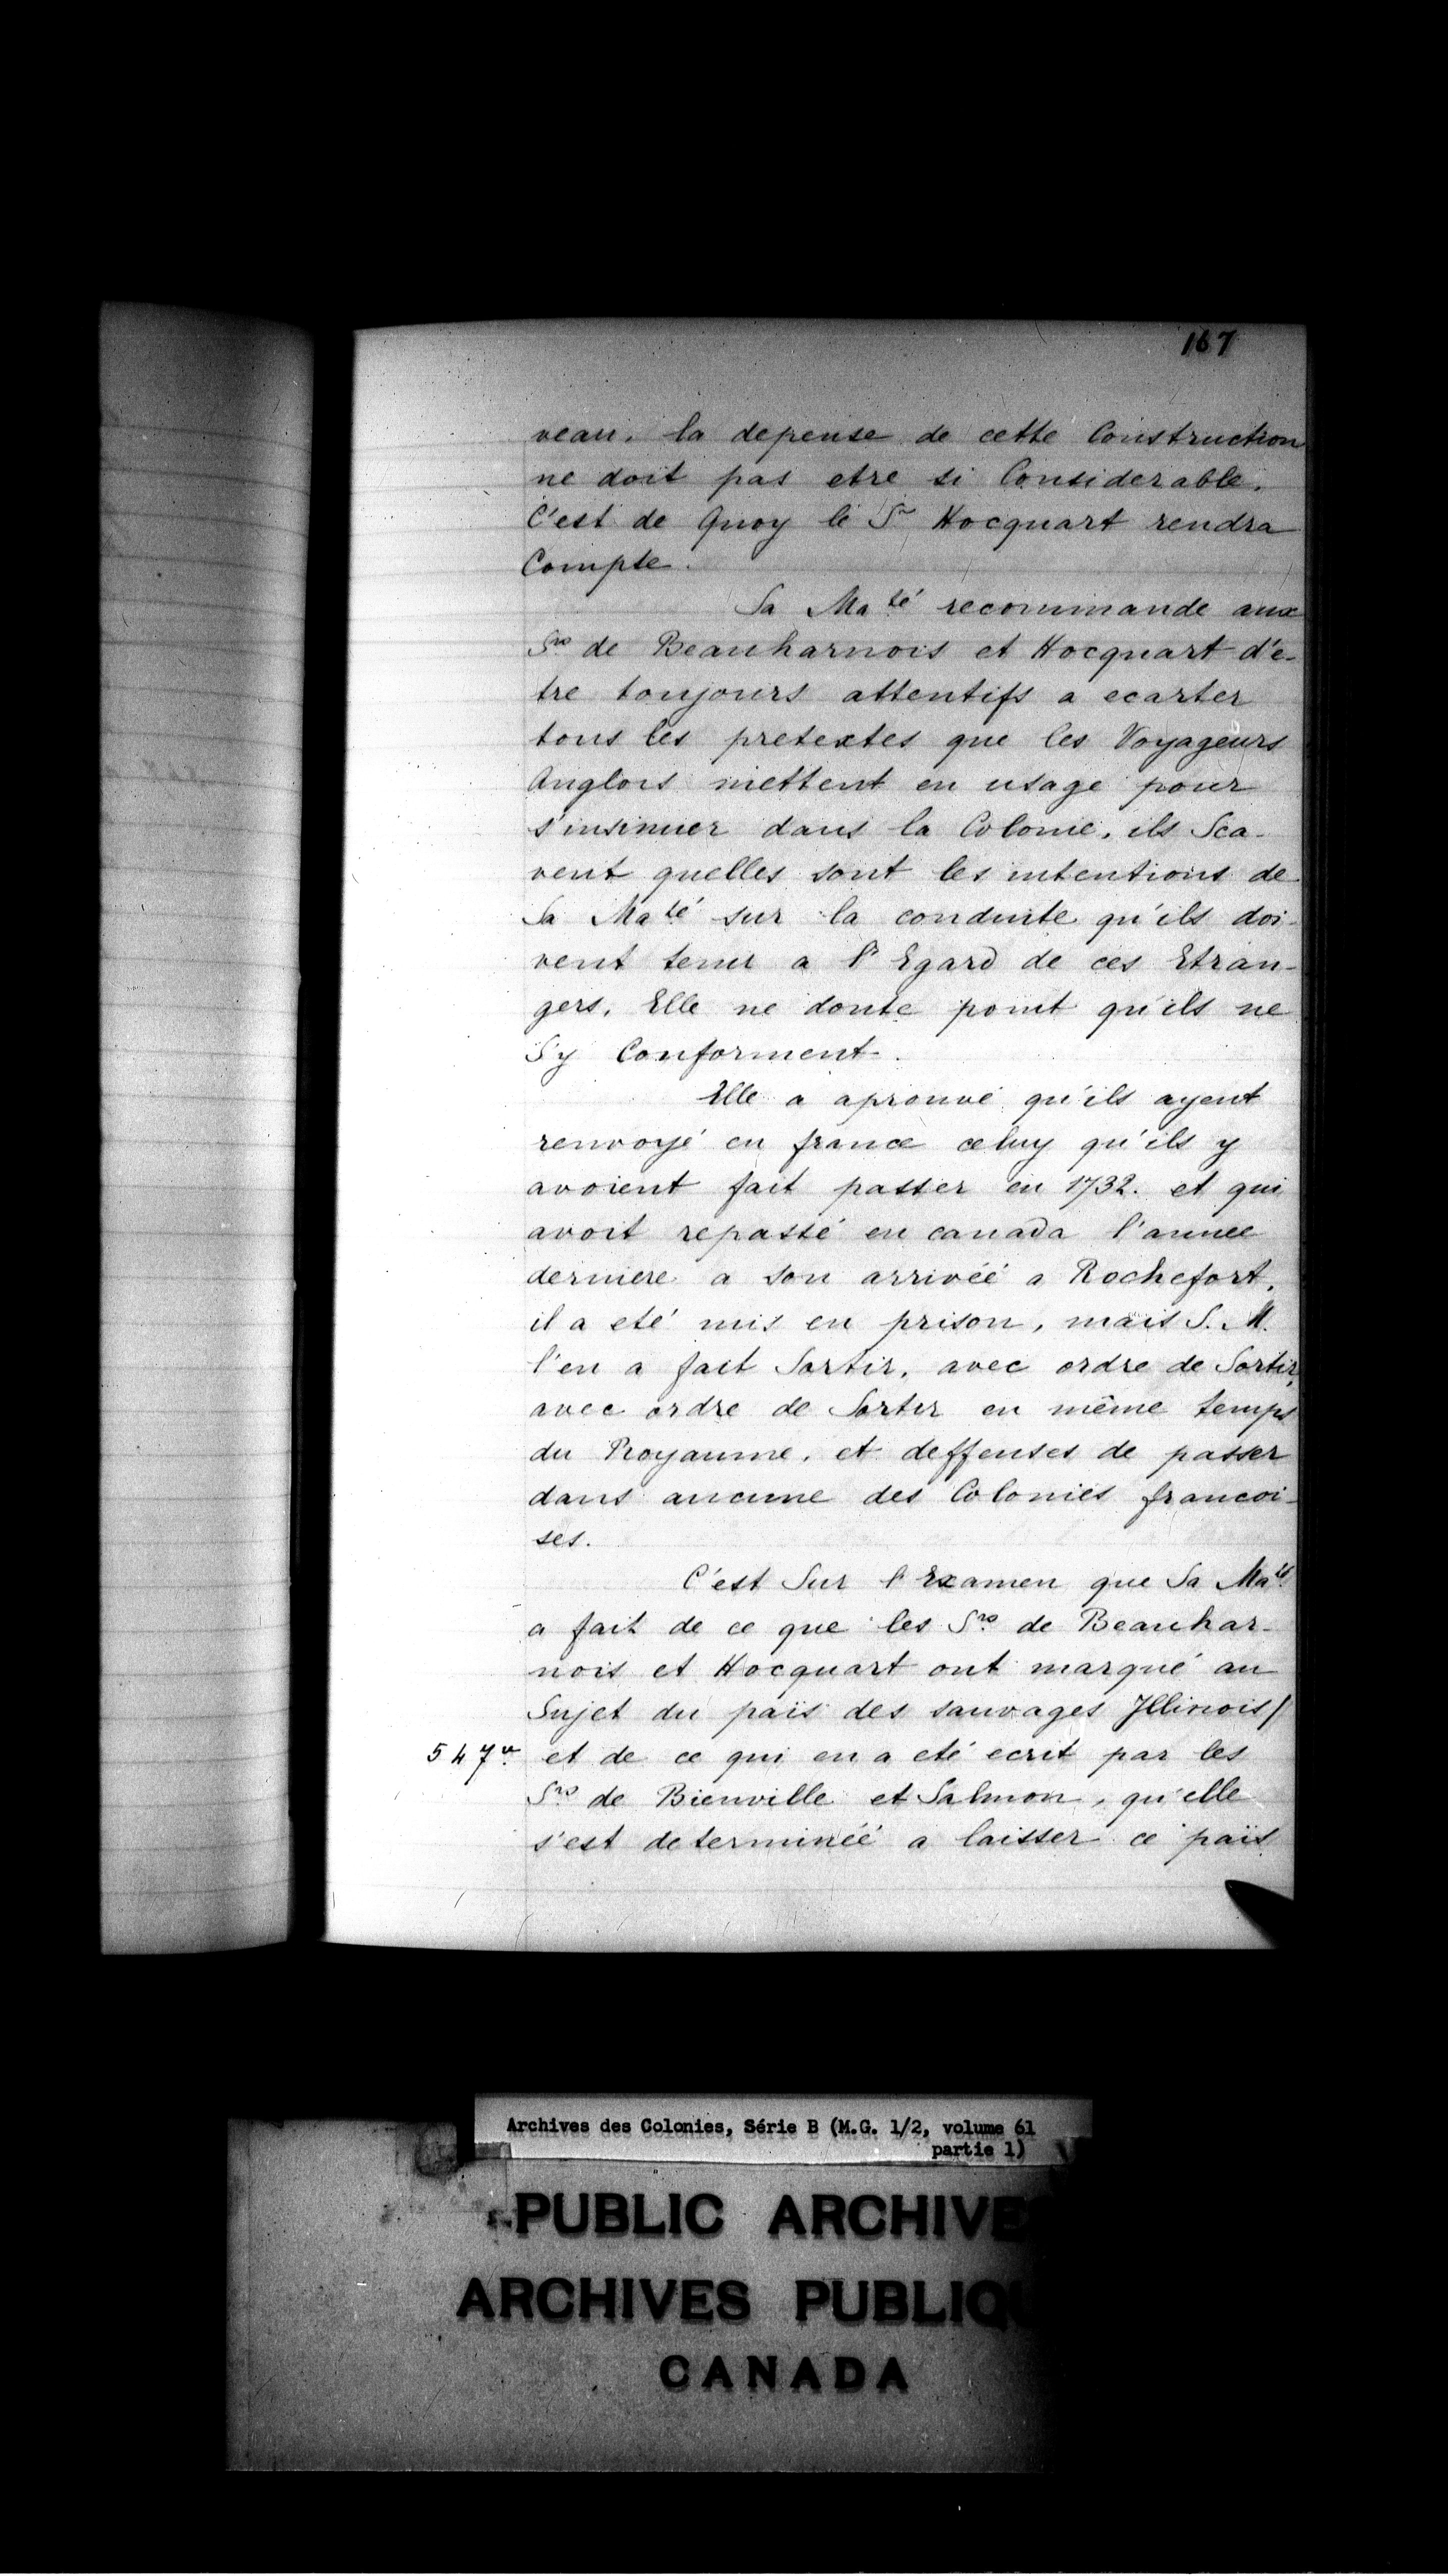 167
veau. la depense de cette Construction
ne doit pas etre si Considerable.
C'est de Quoy le Sr Hocquart rendra
Compte.
Sa Maté recommande aux
Srs de Beauharnois et Hocquart d'e-
tre toujours attentifs a ecarter
tous les pretextes que les Voyageurs
Anglois mettent en usage pour
s'insinuer dans la Colonie, ils Sca-
vent quelles sont les intentions de
Sa Maté sur la conduite qu'ils doi-
vent tenir a l'Egard de ces Etran-
gers. Elle ne doute point qu'ils ne
S'y Conforment.
Elle a aprouvé qu'ils ayent
renvoyé en france celuy qu'ils y
avoient fait passer en 1732. et qui
avoit repassé en canada l'année
derniere a son arrivéé a Rochefort,
il a eté mis en prison, mais S. M.
l'en a fait Sortir, avec ordre de Sortir,
avec ordre de Sortir en même temps
du Royaume, et deffenses de passer
dans aucune des Colonies francoi-
ses.
C'est Sur l'Examen que Sa Maté
a fait de ce que les Srs de Beauhar-
nois et Hocquart ont marqué au
Sujet du païs des sauvages Illinois/
547v. et de ce qui en a eté ecrit par les
Srs de Bienville et Salmon, qu'elle
s'est determinéé a laisser ce païs
Archives des Colonies, Série B (M.G. 1/2, volume 61
partie 1)
PUBLIC ARCHIVES
ARCHIVES PUBLIQU
CANADA